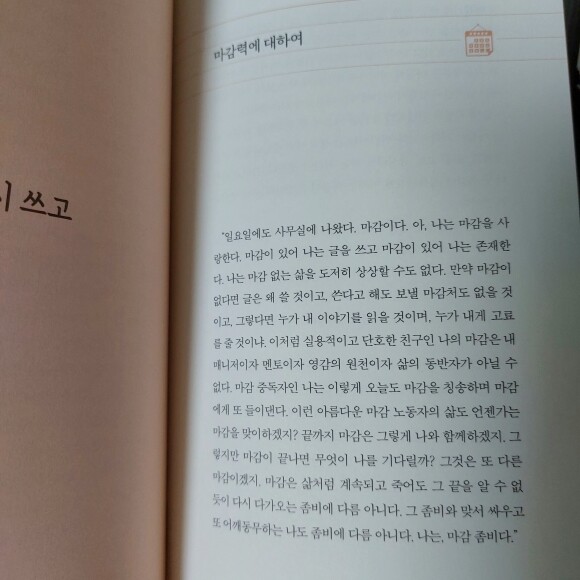 시 쓰고
마감력에 대하여
"일요일에도 사무실에 나왔다. 마감이다. 아, 나는 마감을 사
랑한다. 마감이 있어 나는 글을 쓰고 마감이 있어 나는 존재한
다. 나는 마감 없는 삶을 도저히 상상할 수도 없다. 만약 마감이
없다면 글은 왜 쓸 것이고, 쓴다고 해도 보낼 마감처도 없을 것
이고, 그렇다면 누가 내 이야기를 읽을 것이며, 누가 내게 고료
를 줄 것이냐. 이처럼 실용적이고 단호한 친구인 나의 마감은 내
매니저이자 멘토이자 영감의 원천이자 삶의 동반자가 아닐 수
없다. 마감 중독자인 나는 이렇게 오늘도 마감을 칭송하며 마감
에게 또 들이댄다. 이런 아름다운 마감 노동자의 삶도 언젠가는
마감을 맞이하겠지? 끝까지 마감은 그렇게 나와 함께하겠지. 그
렇지만 마감이 끝나면 무엇이 나를 기다릴까? 그것은 또 다른
마감이겠지. 마감은 삶처럼 계속되고 죽어도 그 끝을 알 수 없
듯이 다시 다가오는 좀비에 다름 아니다. 그 좀비와 맞서 싸우고
또 어깨동무하는 나도 좀비에 다름 아니다. 나는, 마감 좀비다."